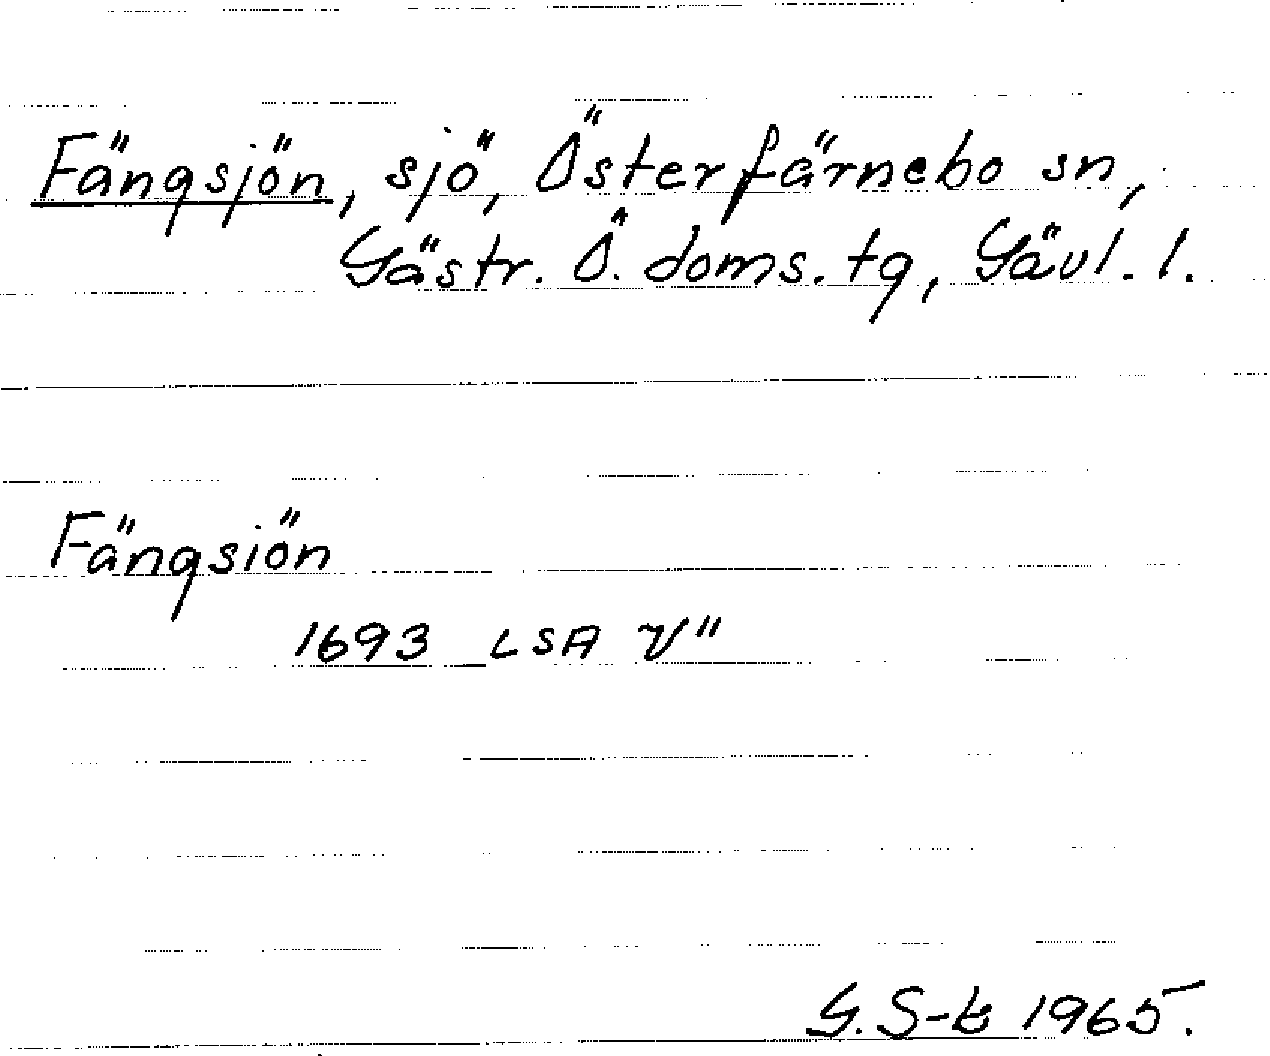 Fängsjön, sjö, Österfärnebo sn,
Gästr. Ö. doms. tg, Gävl. l.
Fängsiön
1693 LSA V"
G. S-b 1965.